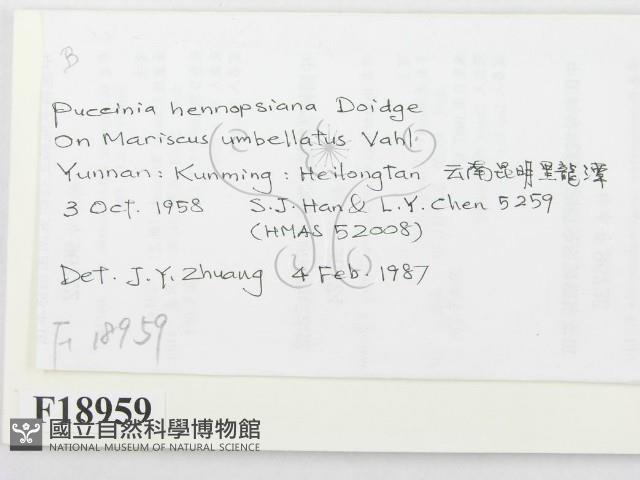 B
Puccinia hennopsiana Doidge
On Mariscus umbellatus Vahl.
Yunnan: Kunming: Heilongtan 云南昆明黑龍潭
3 Oct. 1958 S.J. Han & L.Y. Chen 5259
(HMAS 52008)
Det. J.Y. Zhuang 4 Feb. 1987
F 18959
F18959
國立自然科學博物館
NATIONAL MUSEUM OF NATURAL SCIENCE